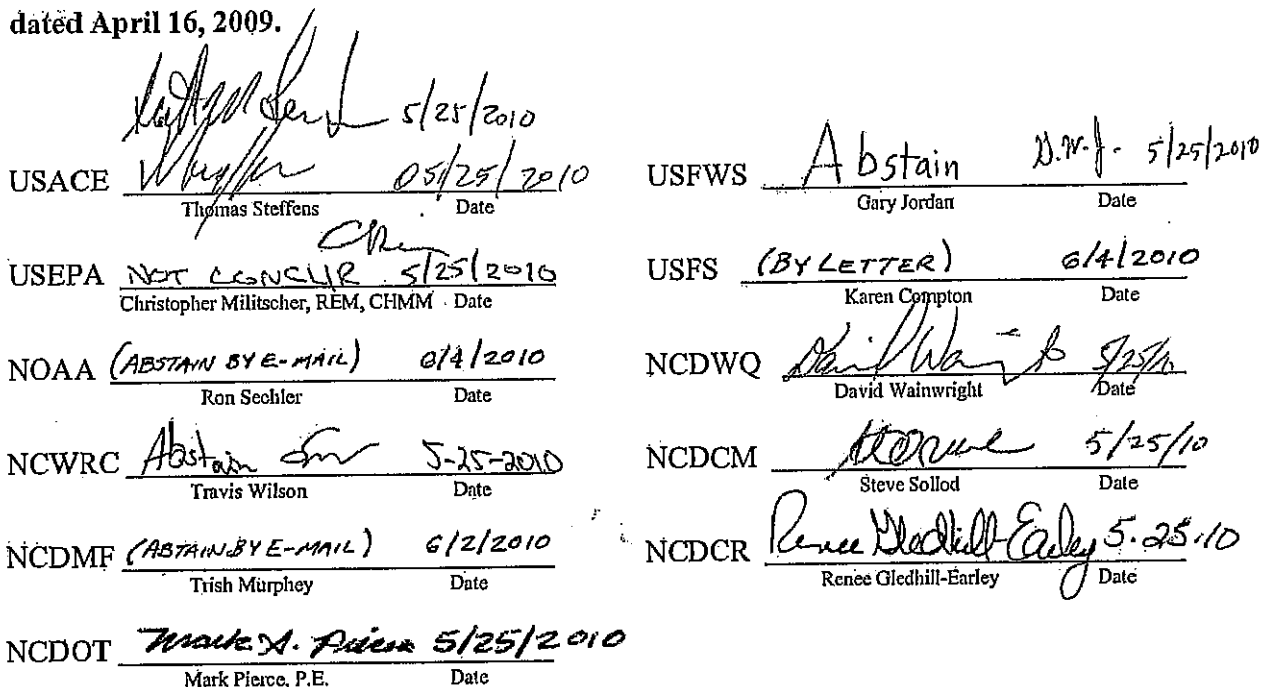 dated April 16, 2009.
5/25/2010
USACE 05/25/2010
Thomas Steffens Date
USEPA NOT CONCUR 5/25/2010
Christopher Militscher, REM, CHMM Date
NOAA (ABSTAIN BY E-MAIL) 6/4/2010
Ron Sechler Date
NCWRC Abstain 5-25-2010
Travis Wilson Date
NCDMF (ABTAIN BY E-MAIL) 6/2/2010
Trish Murphey Date
NCDOT Mark S. Pierce 5/25/2010
Mark Pierce, P.E. Date
USFWS Abstain G.W.J. 5/25/2010
Gary Jordan Date
USFS (BY LETTER) 6/4/2010
Karen Compton Date
NCDWQ David Wainwright 5/25/10
David Wainwright Date
NCDCM 5/25/10
Steve Sollod Date
NCDCR Renee Gledhill-Earley 5.25.10
Renee Gledhill-Earley Date